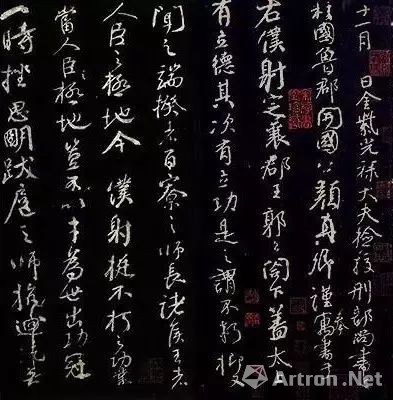 十一月 日金紫光祿大夫檢校刑部尚書上
柱國魯郡開國公顏真卿謹奉寓書于
右僕射定襄郡王郭公閣下蓋太上
有立德其次有立功是之謂不朽抑又
聞之端揆者百寮之師長諸侯王者
人臣之極地今僕射挺不朽之功業
當人臣極地豈不以才為世出功冠
一時挫思明跋扈之師抗迴紇無
Artron.Net